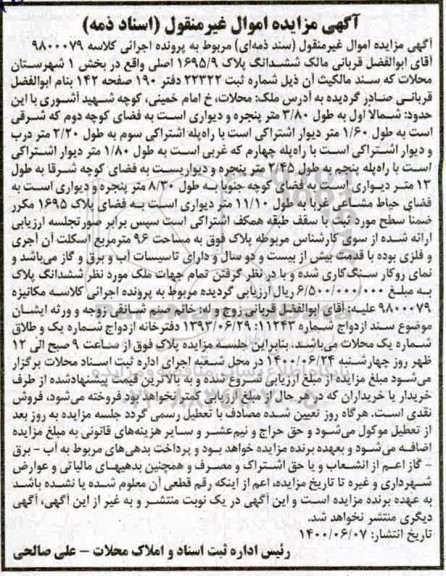 آگهی مزایده اموال غیرمنقول (اسناد ذمه)
آگهی مزایده اموال غیرمنقول (سند ذمه‌ای) مربوط به پرونده اجرائی کلاسه ۹۸۰۰۰۷۹
آقای ابوالفضل قربانی مالک ششدانگ پلاک ۱۶۹۵/۹ اصلی واقع در بخش ۱ شهرستان
محلات که سند مالکیت آن ذیل شماره ثبت ۲۲۳۲۲ دفتر ۱۹۰ صفحه ۱۴۲ بنام ابوالفضل
قربانی صادر گردیده به آدرس ملک: محلات، خ امام خمینی، کوچه شهید آشوری با این
حدود: شمالا اول به طول ۳/۸۰ متر پنجره و دیواری است به فضای کوچه دوم که شرقی
است به طول ۱/۶۰ متر دیوار اشتراکی است با راه‌پله اشتراکی سوم به طول ۲/۲۰ متر درب
و دیوار اشتراکی است با راه‌پله چهارم که غربی است به طول ۱/۸۰ متر دیوار اشتراکی
است با راه‌پله پنجم به طول ۲/۴۵ متر پنجره و دیواریست به فضای کوچه شرقا به طول
۱۳ متر دیواری است به فضای کوچه جنوبا به طول ۸/۳۰ متر پنجره و دیواری است به
فضای حیاط مشاعی غربا به طول ۱۱/۱۰ متر دیواری است به فضای پلاک ۱۶۹۵ مکرر
ضمنا سطح مورد ثبت با سقف طبقه همکف اشتراکی است سپس برابر صورتجلسه ارزیابی
ارائه شده از سوی کارشناس مربوطه پلاک فوق به مساحت ۹۶ مترمربع اسکلت آن آجری
و فلزی بوده با قدمت بیش از بیست و دو سال و دارای تاسیسات آب و برق و گاز می‌باشد و
نمای روکار سنگ‌کاری شده و با در نظر گرفتن تمام جهات ملک مورد نظر ششدانگ پلاک
به مبلغ ۶/۵۰۰/۰۰۰/۰۰۰ ریال ارزیابی گردیده مربوط به پرونده اجرائی کلاسه مکانیزه
۹۸۰۰۰۷۹ علیه: آقای ابوالفضل قربانی زوج و له: خانم صنم شانقی زوجه و ورثه ایشان
موضوع سند ازدواج شماره ۱۱۲۴۳: ۱۳۹۳/۰۶/۲۹ دفترخانه ازدواج شماره یک و طلاق
شماره یک محلات می‌باشند. بنابراین جلسه مزایده پلاک فوق از ساعت ۹ صبح الی ۱۲
ظهر روز چهارشنبه ۱۴۰۰/۰۶/۲۴ در محل شعبه اجرای اداره ثبت اسناد محلات برگزار
می‌شود مبلغ مزایده از مبلغ ارزیابی شروع شده و به بالاترین قیمت پیشنهادشده از طرف
خریدار یا خریداران که در هر حال از مبلغ ارزیابی کمتر نخواهد بود فروخته می‌شود، فروش
نقدی است. هرگاه روز تعیین شده مصادف با تعطیل رسمی گردد جلسه مزایده به روز بعد
از تعطیل موکول می‌شود و حق حراج و نیم‌عشر و سایر هزینه‌های قانونی به مبلغ مزایده
اضافه می‌شود و بعهده برنده مزایده خواهد بود و پرداخت بدهی‌های مربوط به آب - برق
- گاز اعم از انشعاب و یا حق اشتراک و مصرف و همچنین بدهیهای مالیاتی و عوارض
شهرداری و غیره تا تاریخ مزایده، اعم از اینکه رقم قطعی آن معلوم شده یا نشده باشد
به عهده برنده مزایده است و این آگهی در یک نوبت منتشر و به غیر از این آگهی، آگهی
دیگری منتشر نخواهد شد.
تاریخ انتشار: ۱۴۰۰/۰۶/۰۷
رئیس اداره ثبت اسناد و املاک محلات - علی صالحی